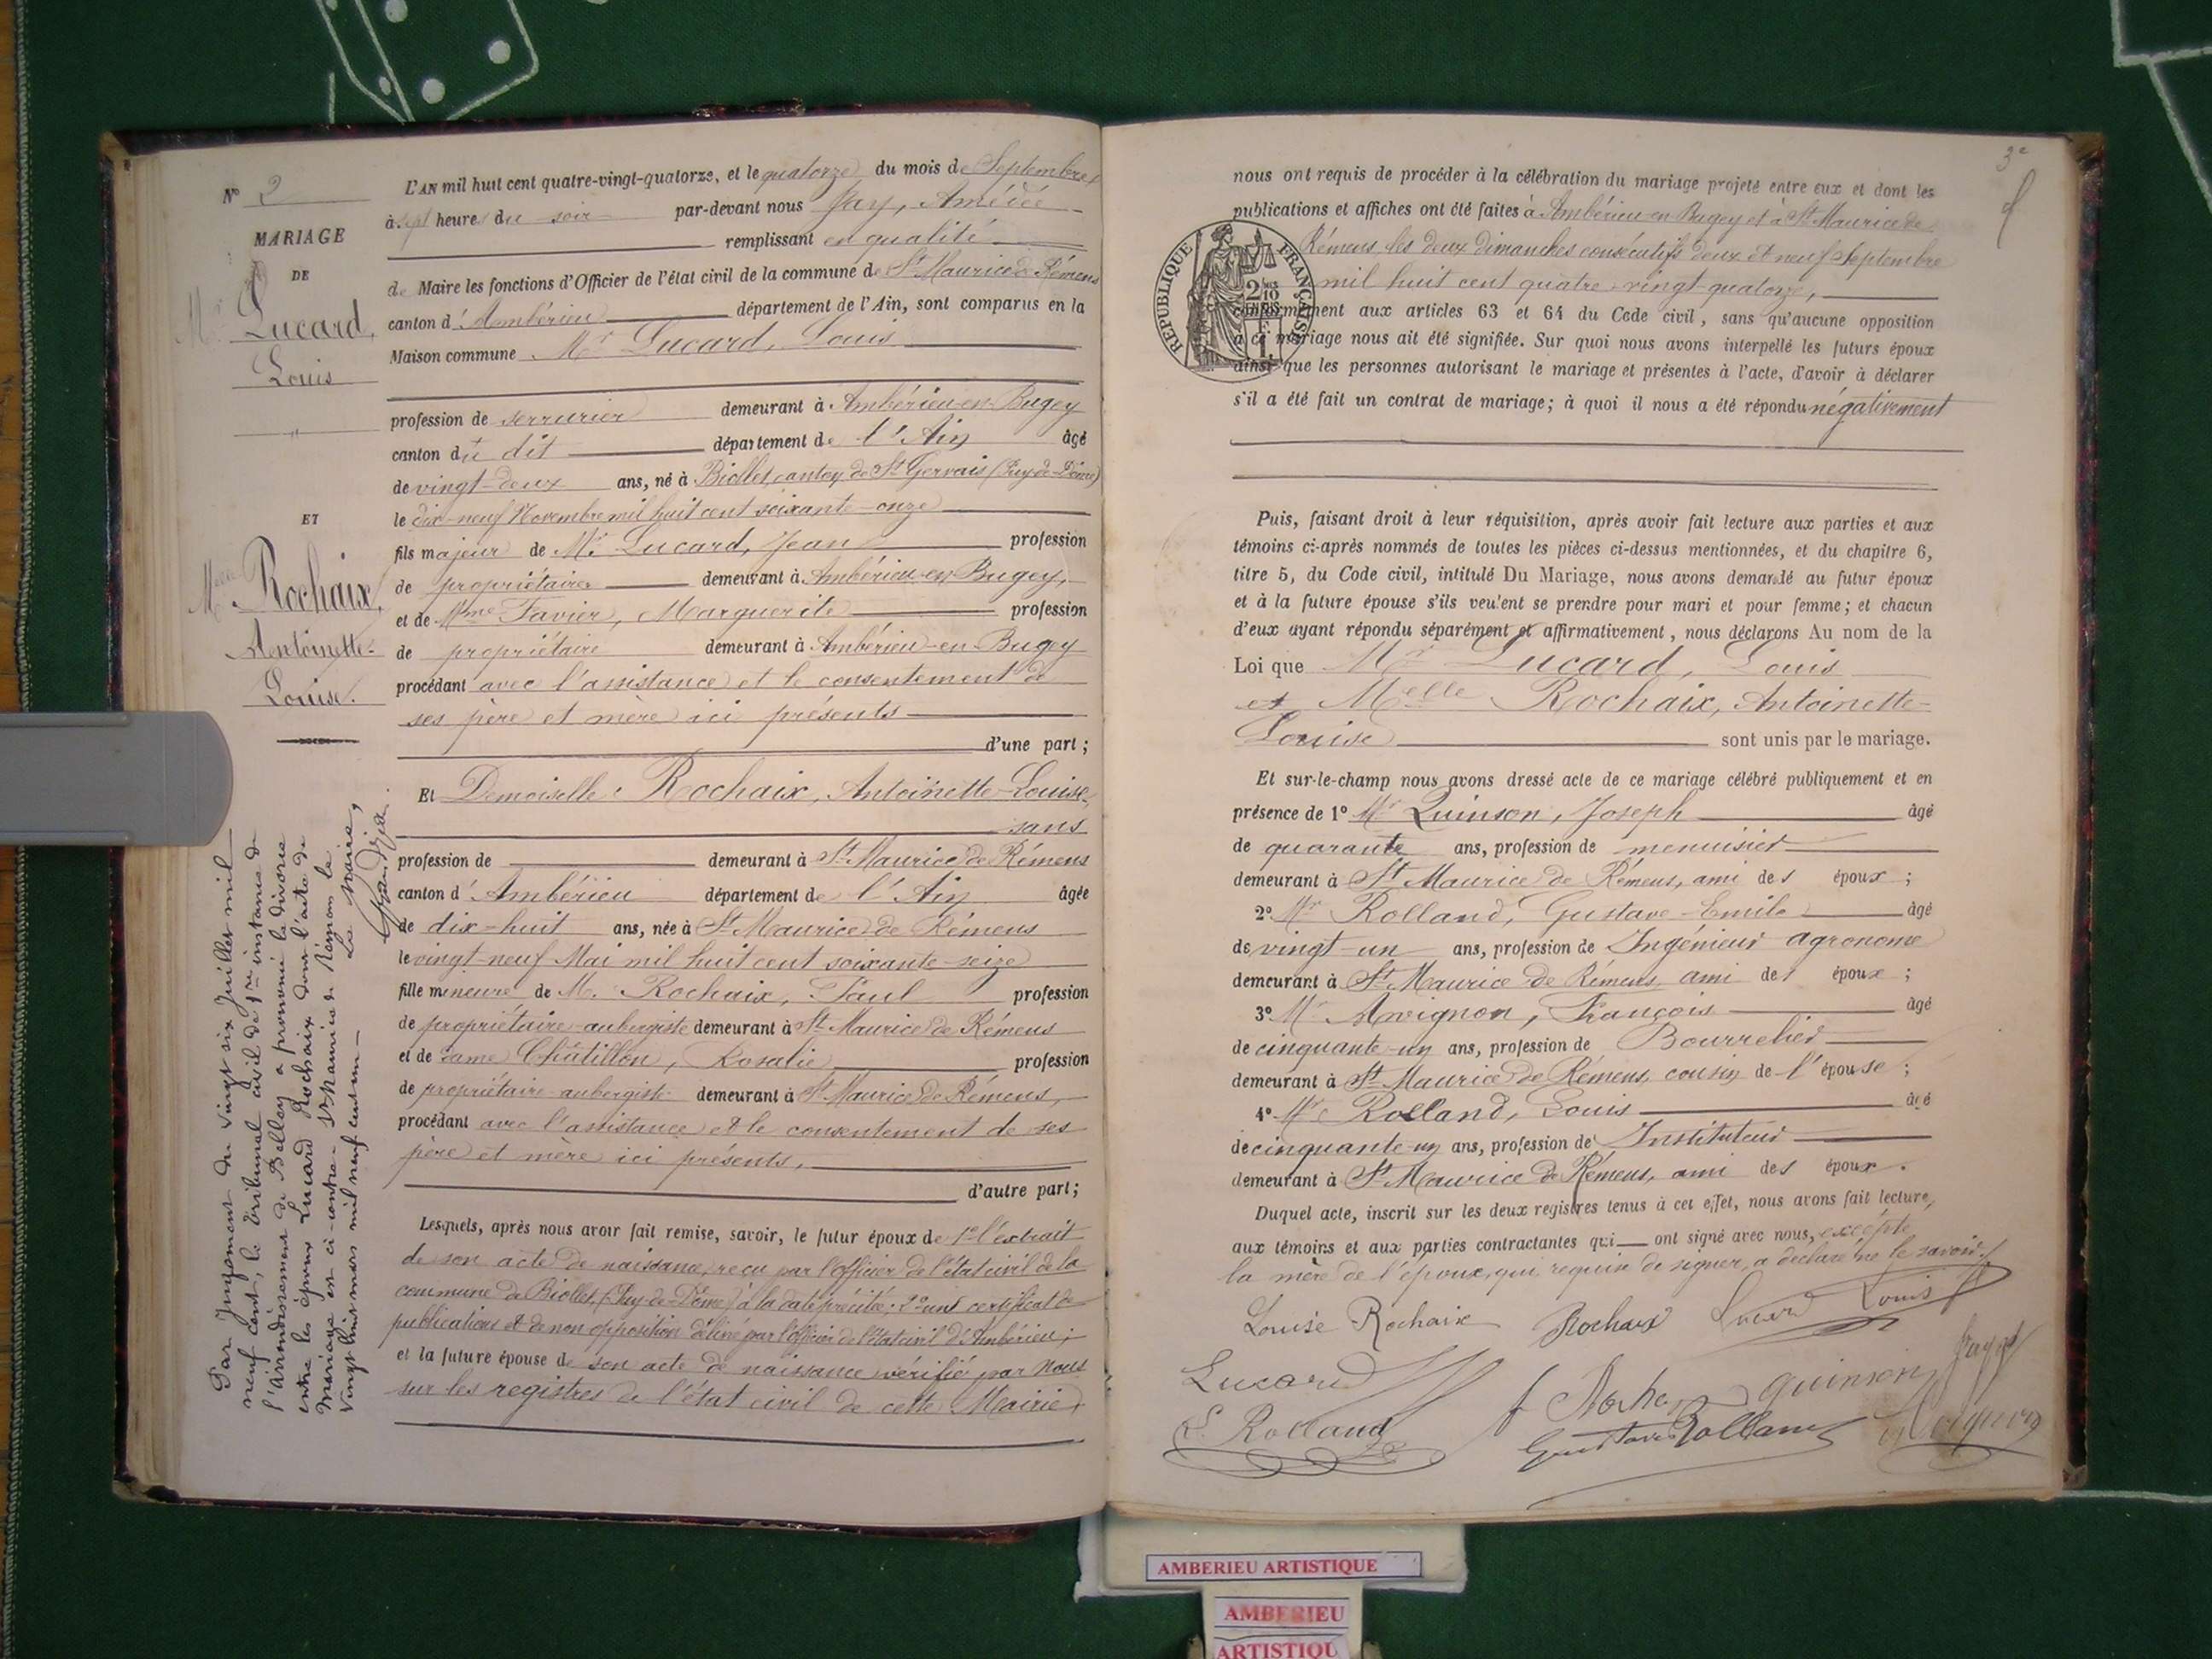 N° 2
MARIAGE
DE
Mr Lucard,
Louis
ET
Melle Rochaix,
Antoinette-
Louise.
Par Jugement du vingt six Juillet mil
neuf cent, le tribunal civil de 1re instance de
l'arrondissement de Belley a prononcé le divorce
entre les époux Lucard Rochaix dont l'acte de
mariage est ci-contre - St Maurice de Rémens le
vingt huit mars mil neuf cent un -
Le Maire,
L'AN mil huit cent quatre-vingt-quatorze, et le quatorze du mois de Septembre,
à sept heures du soir par-devant nous Jay, Amédée
remplissant en qualité
de Maire les fonctions d'Officier de l'état civil de la commune de St Maurice de Rémens
canton d'Ambérieu département de l'Ain, sont comparus en la
Maison commune Mr Lucard, Louis
profession de serrurier demeurant à Ambérieu-en-Bugey
canton du dit département de l'Ain âgé
de vingt-deux ans, né à Biollet, canton de St Gervais (Puy-de-Dôme)
le dix-neuf Novembre mil huit cent soixante-onze
fils majeur de Mr Lucard, Jean profession
de propriétaire demeurant à Ambérieu-en-Bugey,
et de Mme Favier, Marguerite profession
de propriétaire demeurant à Ambérieu-en-Bugey
procédant avec l'assistance et le consentement de
ses père et mère ici présents
d'une part ;
Et Demoiselle Rochaix, Antoinette-Louise,
sans
profession de demeurant à St Maurice de Rémens
canton d'Ambérieu département de l'Ain âgée
de dix-huit ans, née à St Maurice de Rémens
le vingt-neuf Mai mil huit cent soixante-seize
fille mineure de M. Rochaix, Paul profession
de propriétaire-aubergiste demeurant à St Maurice de Rémens
et de dame Châtillon, Rosalie profession
de propriétaire-aubergiste demeurant à St Maurice de Rémens,
procédant avec l'assistance et le consentement de ses
père et mère ici présents,
d'autre part ;
Lesquels, après nous avoir fait remise, savoir, le futur époux de 1° l'extrait
de son acte de naissance, reçu par l'officier de l'état civil de la
commune de Biollet, (Puy-de-Dôme) à la date précitée ; 2° un certificat de
publications et de non opposition délivré par l'officier de l'état civil d'Ambérieu ;
et la future épouse de son acte de naissance vérifié par Nous
sur les registres de l'état civil de cette Mairie,
3e
nous ont requis de procéder à la célébration du mariage projeté entre eux et dont les
publications et affiches ont été faites à Ambérieu-en-Bugey et à St Maurice de
Rémens, les deux dimanches consécutifs deux et neuf septembre
mil huit cent quatre-vingt-quatorze,
RÉPUBLIQUE FRANÇAISE
conformément aux articles 63 et 64 du Code civil, sans qu'aucune opposition
à ce mariage nous ait été signifiée. Sur quoi nous avons interpellé les futurs époux
ainsi que les personnes autorisant le mariage et présentes à l'acte, d'avoir à déclarer
s'il a été fait un contrat de mariage ; à quoi il nous a été répondu négativement
Puis, faisant droit à leur réquisition, après avoir fait lecture aux parties et aux
témoins ci-après nommés de toutes les pièces ci-dessus mentionnées, et du chapitre 6,
titre 5, du Code civil, intitulé Du Mariage, nous avons demandé au futur époux
et à la future épouse s'ils veulent se prendre pour mari et pour femme ; et chacun
d'eux ayant répondu séparément et affirmativement, nous déclarons Au nom de la
Loi que Mr Lucard, Louis
et Melle Rochaix, Antoinette-
Louise sont unis par le mariage.
Et sur-le-champ nous avons dressé acte de ce mariage célébré publiquement et en
présence de 1° Mr Quinson, Joseph âgé
de quarante ans, profession de menuisier
demeurant à St Maurice de Rémens, ami des époux ;
2° Mr Rolland, Gustave-Emile âgé
de vingt-un ans, profession de Ingénieur agronome
demeurant à St Maurice de Rémens, ami des époux ;
3° Mr Avignon, François âgé
de cinquante-un ans, profession de Bourrelier
demeurant à St Maurice de Rémens, cousin de l'épouse ;
4° Mr Rolland, Louis âgé
de cinquante-un ans, profession de Instituteur
demeurant à St Maurice de Rémens, ami des époux.
Duquel acte, inscrit sur les deux registres tenus à cet effet, nous avons fait lecture,
aux témoins et aux parties contractantes qui ont signé avec nous, excepté
la mère de l'époux, qui, requise de signer, a déclaré ne le savoir.
Louise Rochaix Rochaix Lucard Louis
Lucard Quinson Jay
L. Rolland Gustave Rolland Avignon
AMBERIEU ARTISTIQUE
AMBERIEU
ARTISTIQU